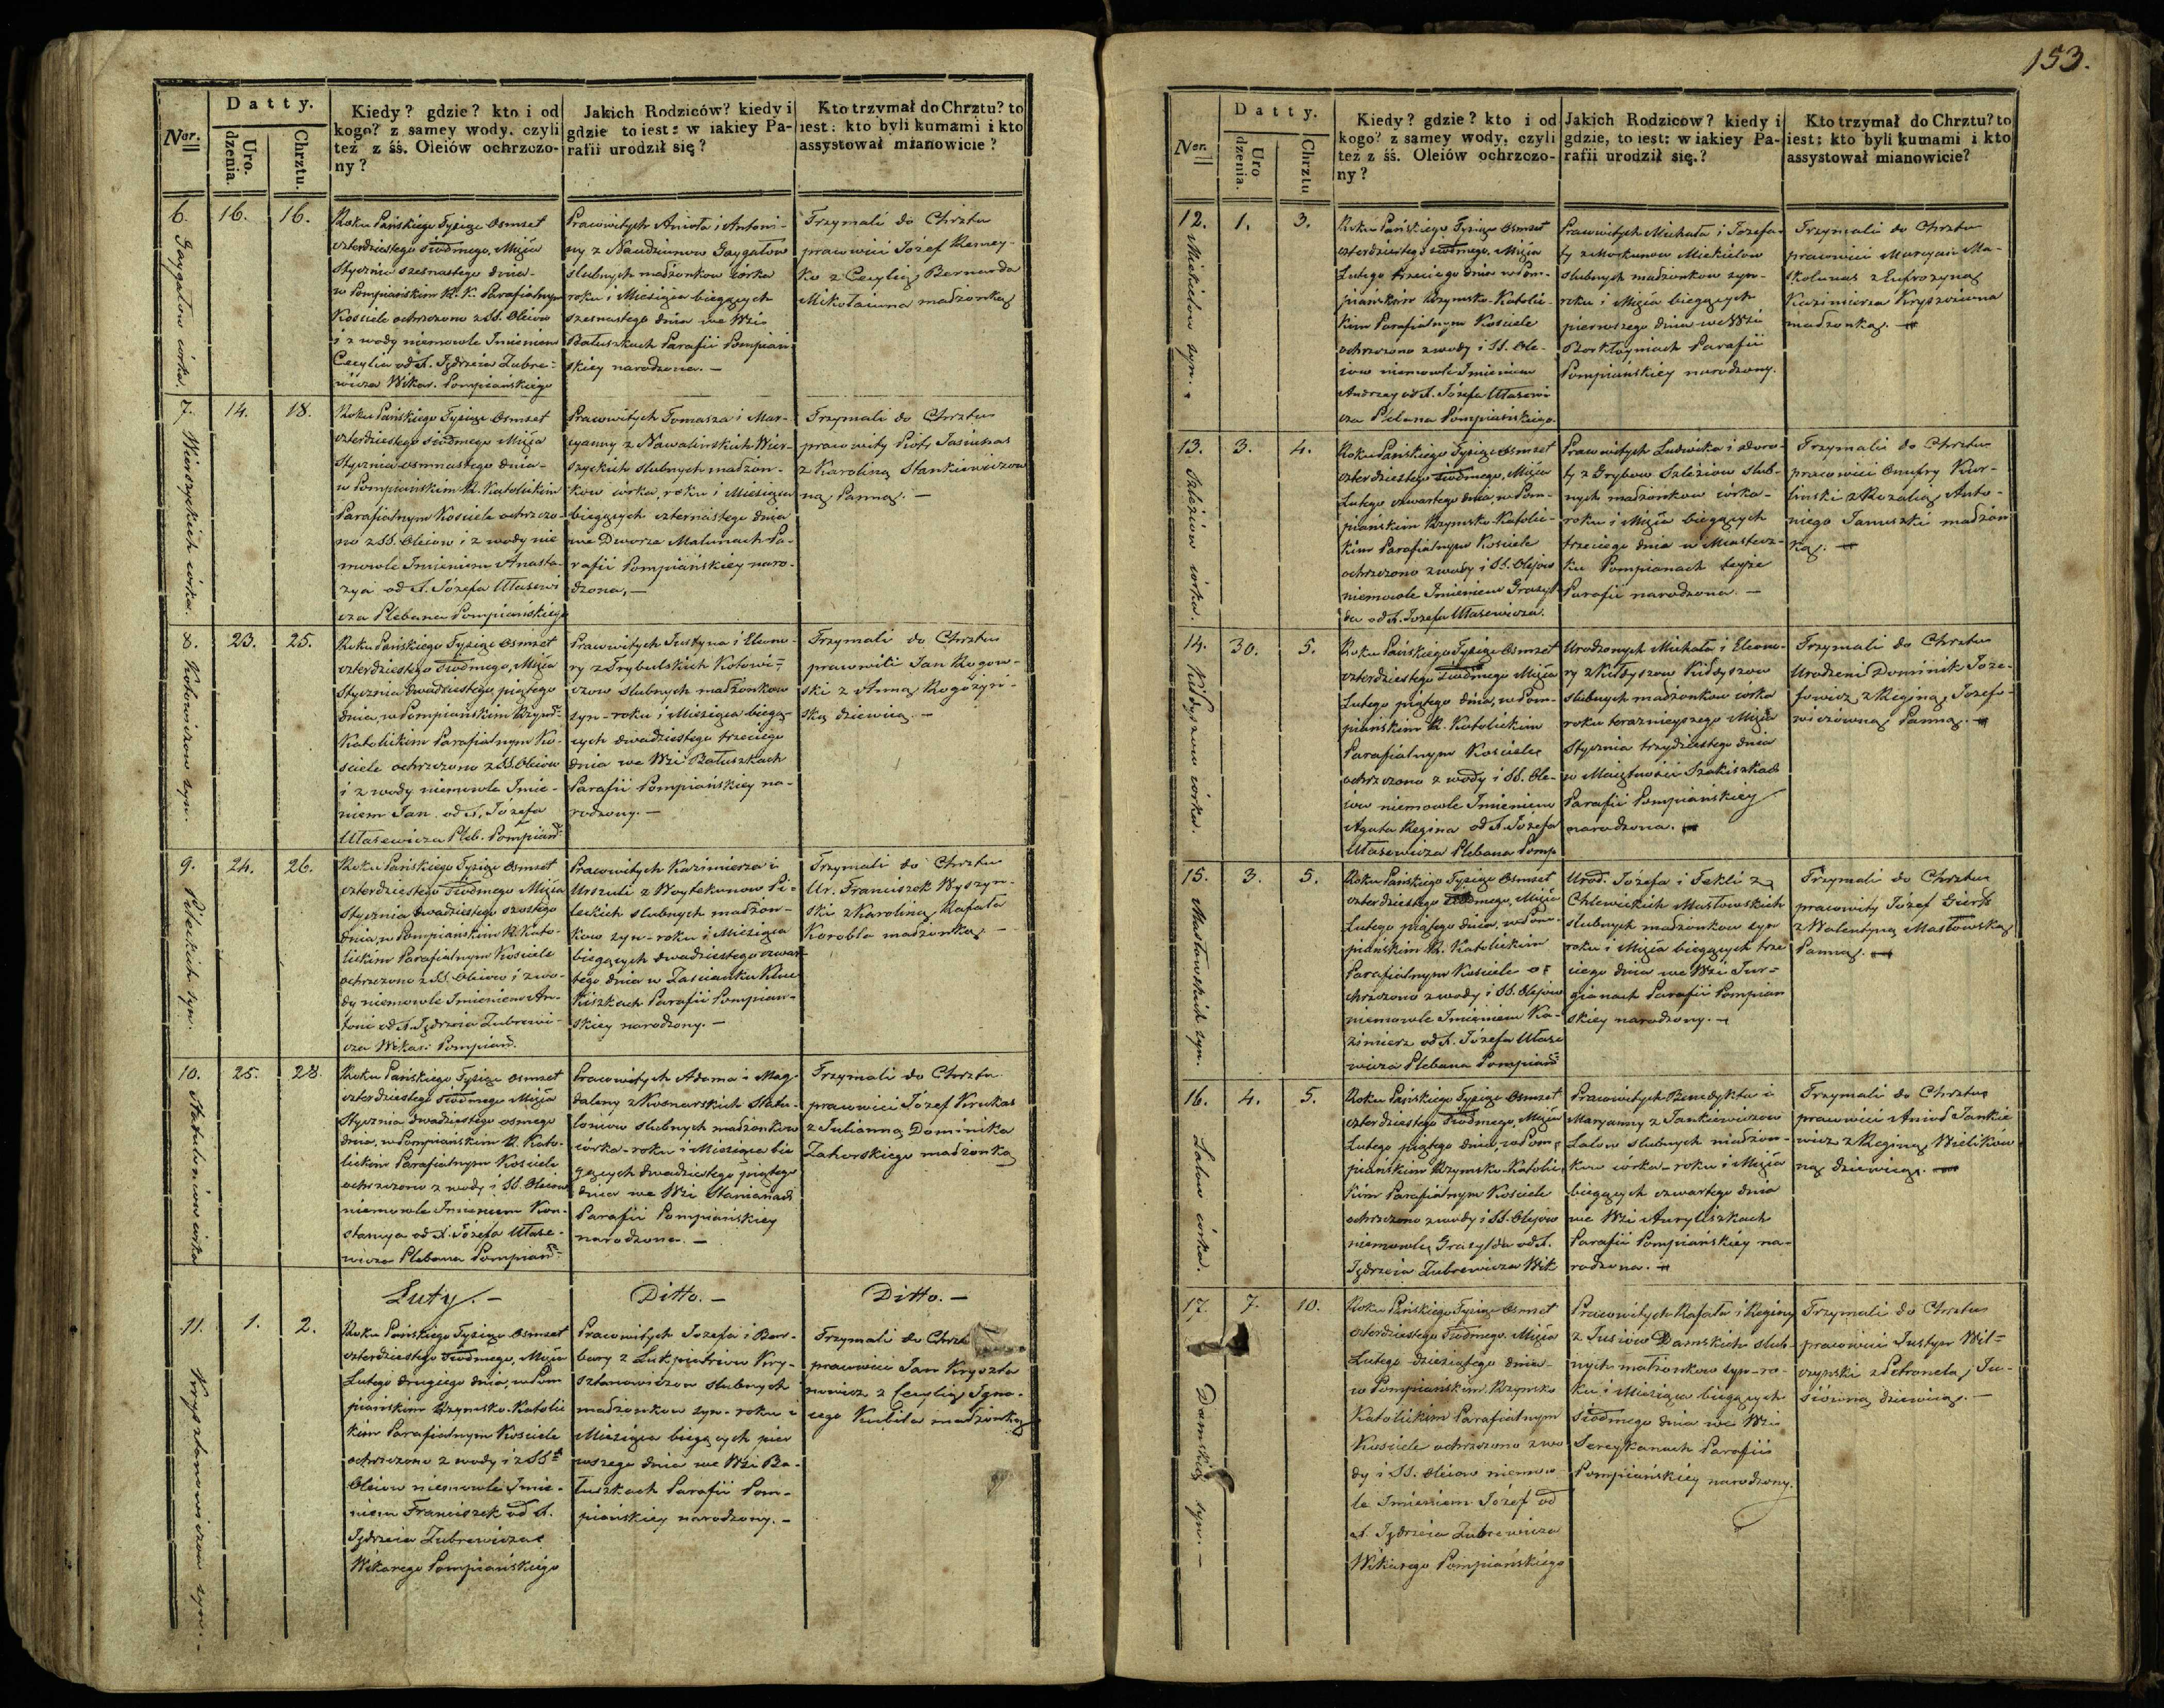 153.
Datty.
Ner.
Uro dzenia.
Chrztu.
Kiedy? gdzie? kto i od
kogo? z samey wody, czyli
też z śś. Oleiów ochrzczo-
ny?
Jakich Rodziców? kiedy i
gdzie to iest: w iakiey Pa-
rafii urodził się?
Kto trzymał do Chrztu? to
iest: kto byli kumami i kto
assystował mianowicie?
6.
Gaygałow córka.
16.
16.
Roku Pańskiego Tysiąc Osmset
czterdziestego siódmego, Msca
Stycznia szesnastego dnia
w Pompiańskim R. K. Parafialnym
Kościele ochrzczono z SS. Oleiów
i z wody niemowle Imieniem
Cecylia od X. Jędrzeia Zubre-
wicza Wikar. Pompiańskiego
Pracowitych Anioła i Antoni-
ny z Naudziunow Gaygałow
ślubnych madżonkow córka
roku i Miesiąca biegących
szesnastego dnia we Wsi
Bałuszkach Parafii Pompiań
skiey narodzona. —
Trzymali do Chrztu
pracowici Józef Remey-
ko z Cecylią Bernarda
Mikołaiuna madżonką
7.
Wierszyckich córka.
14.
18.
Roku Pańskiego Tysiąc Osmset
czterdziestego siódmego Msca
Stycznia osmnastego dnia
w Pompiańskim R. Katolickim
Parafialnym Kościele ochrzczo-
no z SS. Oleiow i z wody nie
mowle Imieniem Anasta-
zya od X. Józefa Ułasewi
cza Plebana Pompiańskiego
Pracowitych Tomasza i Mar-
cyanny z Nawalinskich Wier-
szyckich ślubnych madżon-
kow córka, roku i Miesiąca
biegących czternastego dnia
we Dworze Malunach Pa-
rafii Pompiańskiey naro-
dzona, —
Trzymali do Chrztu
pracowity Piotr Jasiunas
z Karoliną Stankiewiczow
ną Panną. —
8.
Kotowiczow syn.
23.
25.
Roku Pańskiego Tysiąc Osmset
czterdziestego siódmego, Msca
Stycznia dwadziestego piątego
dnia, w Pompiańskim Rzyms-
Katolickim Parafialnym Ko-
ściele ochrzczono z SS. Oleiow
i z wody niemowle Imie-
niem Jan od X. Józefa
Ułasewicza Pleb. Pompiań.
Pracowitych Justyna i Eleono-
ry z Trybulskich Kotowi-
czow ślubnych madżonkow
syn - roku i Miesiąca biegą-
cych dwadziestego trzeciego
dnia we Wsi Bałuszkach
Parafii Pompiańskiey na-
rodzony. —
Trzymali do Chrztu
pracowici Jan Rogow-
ski z Anną Rogożyń-
ską dziewicą. —
9.
Pileckich syn.
24.
26.
Roku Pańskiego Tysiąc Osmset
czterdziestego siódmego Msca
Stycznia dwadziestego szostego
dnia, w Pompiańskim R. Kato-
lickim Parafialnym Kościele
ochrzczono z SS. Oleiow i z wo-
dy niemowle Imieniem An-
toni od X. Jędrzeia Zubrewi-
cza Wikar. Pompiań.
Pracowitych Kazimierza i
Urszuli z Woytekunow Pi-
leckich ślubnych madżon-
kow syn - roku i Miesiąca
biegących dwadziestego czwar
tego dnia w Zaścianku Klau
kiszkach Parafii Pompiań-
skiey narodzony. —
Trzymali do Chrztu
Ur. Franciszek Wyszyn-
ski z Karoliną Rafała
Korobla madżonką. —
10.
Statuloniow córka
25.
28.
Roku Pańskiego Tysiąc Osmset
czterdziestego siódmego Msca
Stycznia dwadziestego osmego
dnia, w Pompiańskim R. Kato-
lickim Parafialnym Kościele
ochrzczono z wody i SS. Oleiow
niemowle Imieniem Kon-
stancya od X. Józefa Ułase-
wicza Plebana Pompiań.
Pracowitych Adama i Mag-
daleny z Kosnarskich Statu-
loniow ślubnych madżonkow
córka - roku i Miesiąca bie
gących dwadziestego piątego
dnia we Wsi Stanianach
Parafii Pompiańskiey
narodzona. —
Trzymali do Chrztu
pracowici Józef Krukas
z Julianną Dominika
Zahorskiego madżonką
Luty. —
Ditto. —
Ditto. —
11.
Krysztanowiczow syn. —
1.
2.
Roku Pańskiego Tysiąc Osmset
czterdziestego siódmego, Msca
Lutego drugiego dnia, w Pom
piańskim Rzymsko-Katolic
kim Parafialnym Kościele
ochrzczono z wody i z SS.
Oleiow niemowle Imie-
niem Franciszek od X.
Jędrzeia Zubrewicza
Wikarego Pompiańskiego
Pracowitych Jozefa i Bar-
bary z Łukpietriow Kry-
sztanowiczow ślubnych
madżonkow syn - roku i
Miesiąca biegących pier
wszego dnia we Wsi Ba-
łuszkach Parafii Pom-
piańskiey narodzony. —
Trzymali do Chrzt
pracowici Jan Kryszta
nowicz z Cecylią Igna-
cego Kubila madżonką
Datty.
Ner.
Uro dzenia.
Chrztu
Kiedy? gdzie? kto i od
kogo? z samey wody, czyli
też z śś. Oleiów ochrzczo-
ny?
Jakich Rodziców? kiedy i
gdzie, to iest: w iakiey Pa-
rafii urodził się.?
Kto trzymał do Chrztu? to
iest: kto byli kumami i kto
assystował mianowicie?
12.
Mickielow syn. -
1.
3.
Roku Pańskiego Tysiąc Osmset
czterdziestego siódmego, Msca
Lutego trzeciego dnia w Pom-
piańskim Rzymsko-Katolic-
kim Parafialnym Kościele
ochrzczono z wody i SS. Ole-
iow niemowle Imieniem
Andrzey od X. Józefa Ułasewi
cza Plebana Pompiańskiego
Pracowitych Michała i Jozefa-
ty z Morkunow Mickielow
ślubnych madżonkow syn-
roku i Msca biegących
pierwszego dnia we Wsi
Borkłoyniach Parafii
Pompiańskiey narodzony.
Trzymali do Chrztu
pracowici Marcyan Ma-
skolunas z Eufrozyną
Kazimierza Kryszciuna
madżonką. —
13.
Szleżiow córka.
3.
4.
Roku Pańskiego Tysiąc Osmset
czterdziestego siódmego, Msca
Lutego czwartego dnia, w Pom-
piańskim Rzymsko-Katolic-
kim Parafialnym Kościele
ochrzczono z wody i SS. Olejow
niemowle Imieniem Grazyl
da od X. Jozefa Ułasewicza.
Pracowitych Ludwika i Doro-
ty z Grybow Szleżiow ślub-
nych madżonkow córka-
roku i Msca biegących
trzeciego dnia w Miastecz-
ku Pompianach teyże
Parafii narodzona. —
Trzymali do Chrztu
pracowici Onufry Kur-
linski z Rozalią Anto-
niego Januszki madżon
ką. —
14.
Kildyszow córka.
30.
5.
Roku Pańskiego Tysiąc Osmset
czterdziestego siódmego Msca
Lutego piątego dnia, w Pom-
piańskim R. Katolickim
Parafialnym Kościele
ochrzczono z wody i SS. Ole-
iow niemowle Imieniem
Agata Regina od X. Jozefa
Ułasewicza Plebana Pomp
Urodzonych Michała i Eleono-
ry z Kildyszow Kildyszow
ślubnych madżonkow córka
roku terazniejszego Msca
Stycznia trzydziestego dnia
w Maiętności Szakiszkach
Parafii Pompiańskiey
narodzona. —
Trzymali do Chrztu
Urodzeni Dominik Joze-
fowicz z Reginą Jozefo-
wiczówną Panną. —
15.
Masłowskich syn.
3.
5.
Roku Pańskiego Tysiąc Osmset
czterdziestego siódmego, Msca
Lutego piątego dnia, w Pom-
piańskim R. Katolickim
Parafialnym Kościele o-
chrzczono z wody i SS. Olejow
niemowle Imieniem Ka-
zimierz od X. Józefa Ułase
wicza Plebana Pompiań
Urod. Józefa i Tekli z
Chlewickich Masłowskich
ślubnych madżonkow syn
roku i Msca biegących trze
ciego dnia we Wsi Jur-
gianach Parafii Pompian
skiey narodzony. —
Trzymali do Chrztu
pracowity Józef Gierk
z Walentyną Masłowską
Panną. —
16.
Lalow córka.
4.
5.
Roku Pańskiego Tysiąc Osmset
czterdziestego siódmego, Msca
Lutego piątego dnia, w Pom-
piańskim Rzymsko-Katolic
kim Parafialnym Kościele
ochrzczono z wody i SS. Olejow
niemowle Grazylda od X.
Jędrzeia Zubrewicza Wik
Pracowitych Benedykta i
Maryanny z Jankiewiczow
Lalow ślubnych madżon-
kow córka - roku i Msca
biegących czwartego dnia
we Wsi Auryliszkach
Parafii Pompiańskiey na-
rodzona. —
Trzymali do Chrztu
pracowici Anioł Jankie
wicz z Reginą Wielikow
ną dziewicą. —
17.
Damskich syn. —
7.
10.
Roku Pańskiego Tysiąc Osmset
czterdziestego siódmego. Msca
Lutego dziesiątego dnia-
w Pompiańskim Rzymsko
Katolickim Parafialnym
Kościele ochrzczono z wo
dy i SS. Oleiow niemow-
le Imieniem Józef od
X. Jędrzeia Zubrewicza
Wikarego Pompiańskiego
Pracowitych Rafała i Reginy
z Jusiow Damskich ślub-
nych małżonkow syn - ro-
ku i Miesiąca biegących
siódmego dnia we Wsi
Sereykanach Parafii
Pompiańskiey narodzony.
Trzymali do Chrztu
pracowici Justyn Wil-
czynski z Petronelą Ju-
siówną dziewicą. —